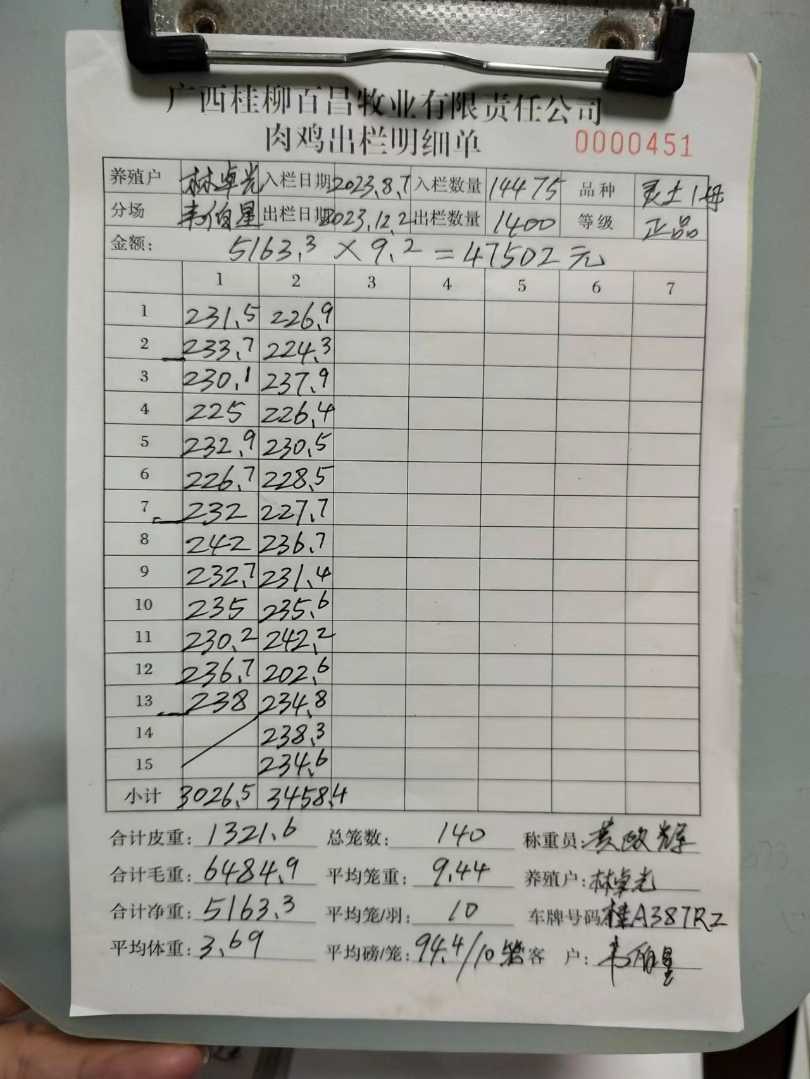 广西桂柳百昌牧业有限责任公司
肉鸡出栏明细单 0000451
养殖户 林卓光 入栏日期 2023.8.7 入栏数量 14475 品种 灵土1母
分场 韦伯星 出栏日期 2023.12.2 出栏数量 1400 等级 正品
金额: 5163.3 × 9.2 = 47502元
1 2 3 4 5 6 7
1 231.5 226.9
2 233.7 224.3
3 230.1 237.9
4 225 226.4
5 232.9 230.5
6 226.7 228.5
7 232 227.7
8 242 236.7
9 232.7 231.4
10 235 235.6
11 230.2 242.2
12 236.7 202.6
13 238 234.8
14 238.3
15 234.6
小计 3026.5 3458.4
合计皮重: 1321.6 总笼数: 140 称重员: 黄政辉
合计毛重: 6484.9 平均笼重: 9.44 养殖户: 林卓光
合计净重: 5163.3 平均笼/羽: 10 车牌号码 桂A387RZ
平均体重: 3.69 平均磅/笼: 94.4/10 客户: 韦伯星